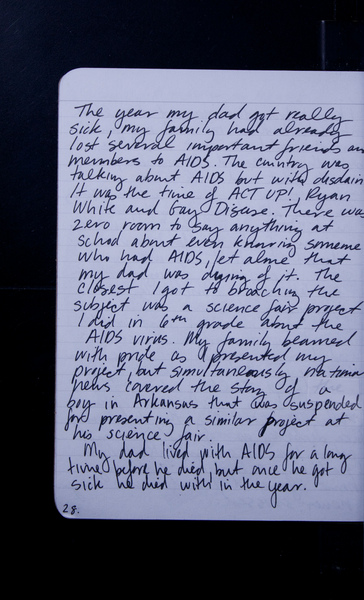 The year my dad got really
sick, my family had already
lost several important friends an
members to AIDS. The country was
talking about AIDS but with disdain
It was the time of ACT UP!, Ryan
White and Gay Disease. There was
zero room to say anything at
school about even knowing someone
who had AIDS, let alone that
my dad was dying of it. The
closest I got to broaching the
subject was a science fair project
I did in 6th grade about the
AIDS virus. My family beamed
with pride as I presented my
project, but simultaneously nationa
news covered the story of a
boy in Arkansas that was suspended
for presenting a similar project at
his science fair.
My dad lived with AIDS for a long
time before he died, but once he got
sick he died with in the year.
28.